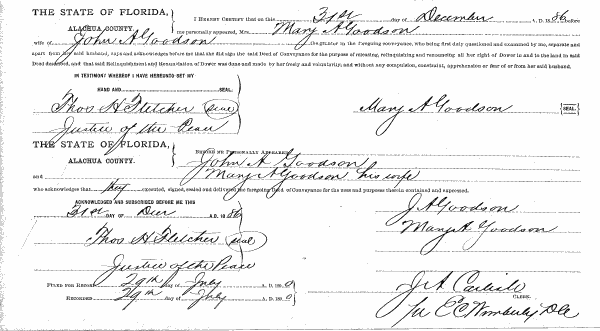 THE STATE OF FLORIDA,
ALACHUA COUNTY.
I HEREBY CERTIFY that on this 31st day of December A. D. 1886 before
me personally appeared, Mrs. Mary A Goodson
wife of John A Goodson the grantor to the foregoing conveyance, who being first duly questioned and examined by me, separate and
apart from her said husband, says and acknowledges before me that she did sign the said Deed of Conveyance for the purpose of renouncing, relinquishing and renouncing all her right of Dower in and to the land in said
Deed described, and that said Relinquishment and Renunciation of Dower was done and made by her freely and voluntarily, and without any compulsion, constraint, apprehension or fear of or from her said husband.
IN TESTIMONY WHEREOF I HAVE HEREUNTO SET MY
HAND AND SEAL.
Thos H Fletcher (seal)
Mary A Goodson [SEAL]
Justice of the Peace
THE STATE OF FLORIDA,
ALACHUA COUNTY.
BEFORE ME PERSONALLY APPEARED
John A Goodson
and Mary A Goodson his wife
who acknowledges that they executed, signed, sealed and delivered the foregoing Deed of Conveyance for the uses and purposes therein contained and expressed.
ACKNOWLEDGED AND SUBSCRIBED BEFORE ME THIS
31st DAY OF Decr A.D. 1886
J A Goodson
Mary A. Goodson
Thos H Fletcher (seal)
Justice of the Peace
FILED FOR RECORD 29th day of July A. D. 1890
RECORDED 29th day of July A. D. 1890
J A Carlisle
CLERK.
Per E C Wimberly D C